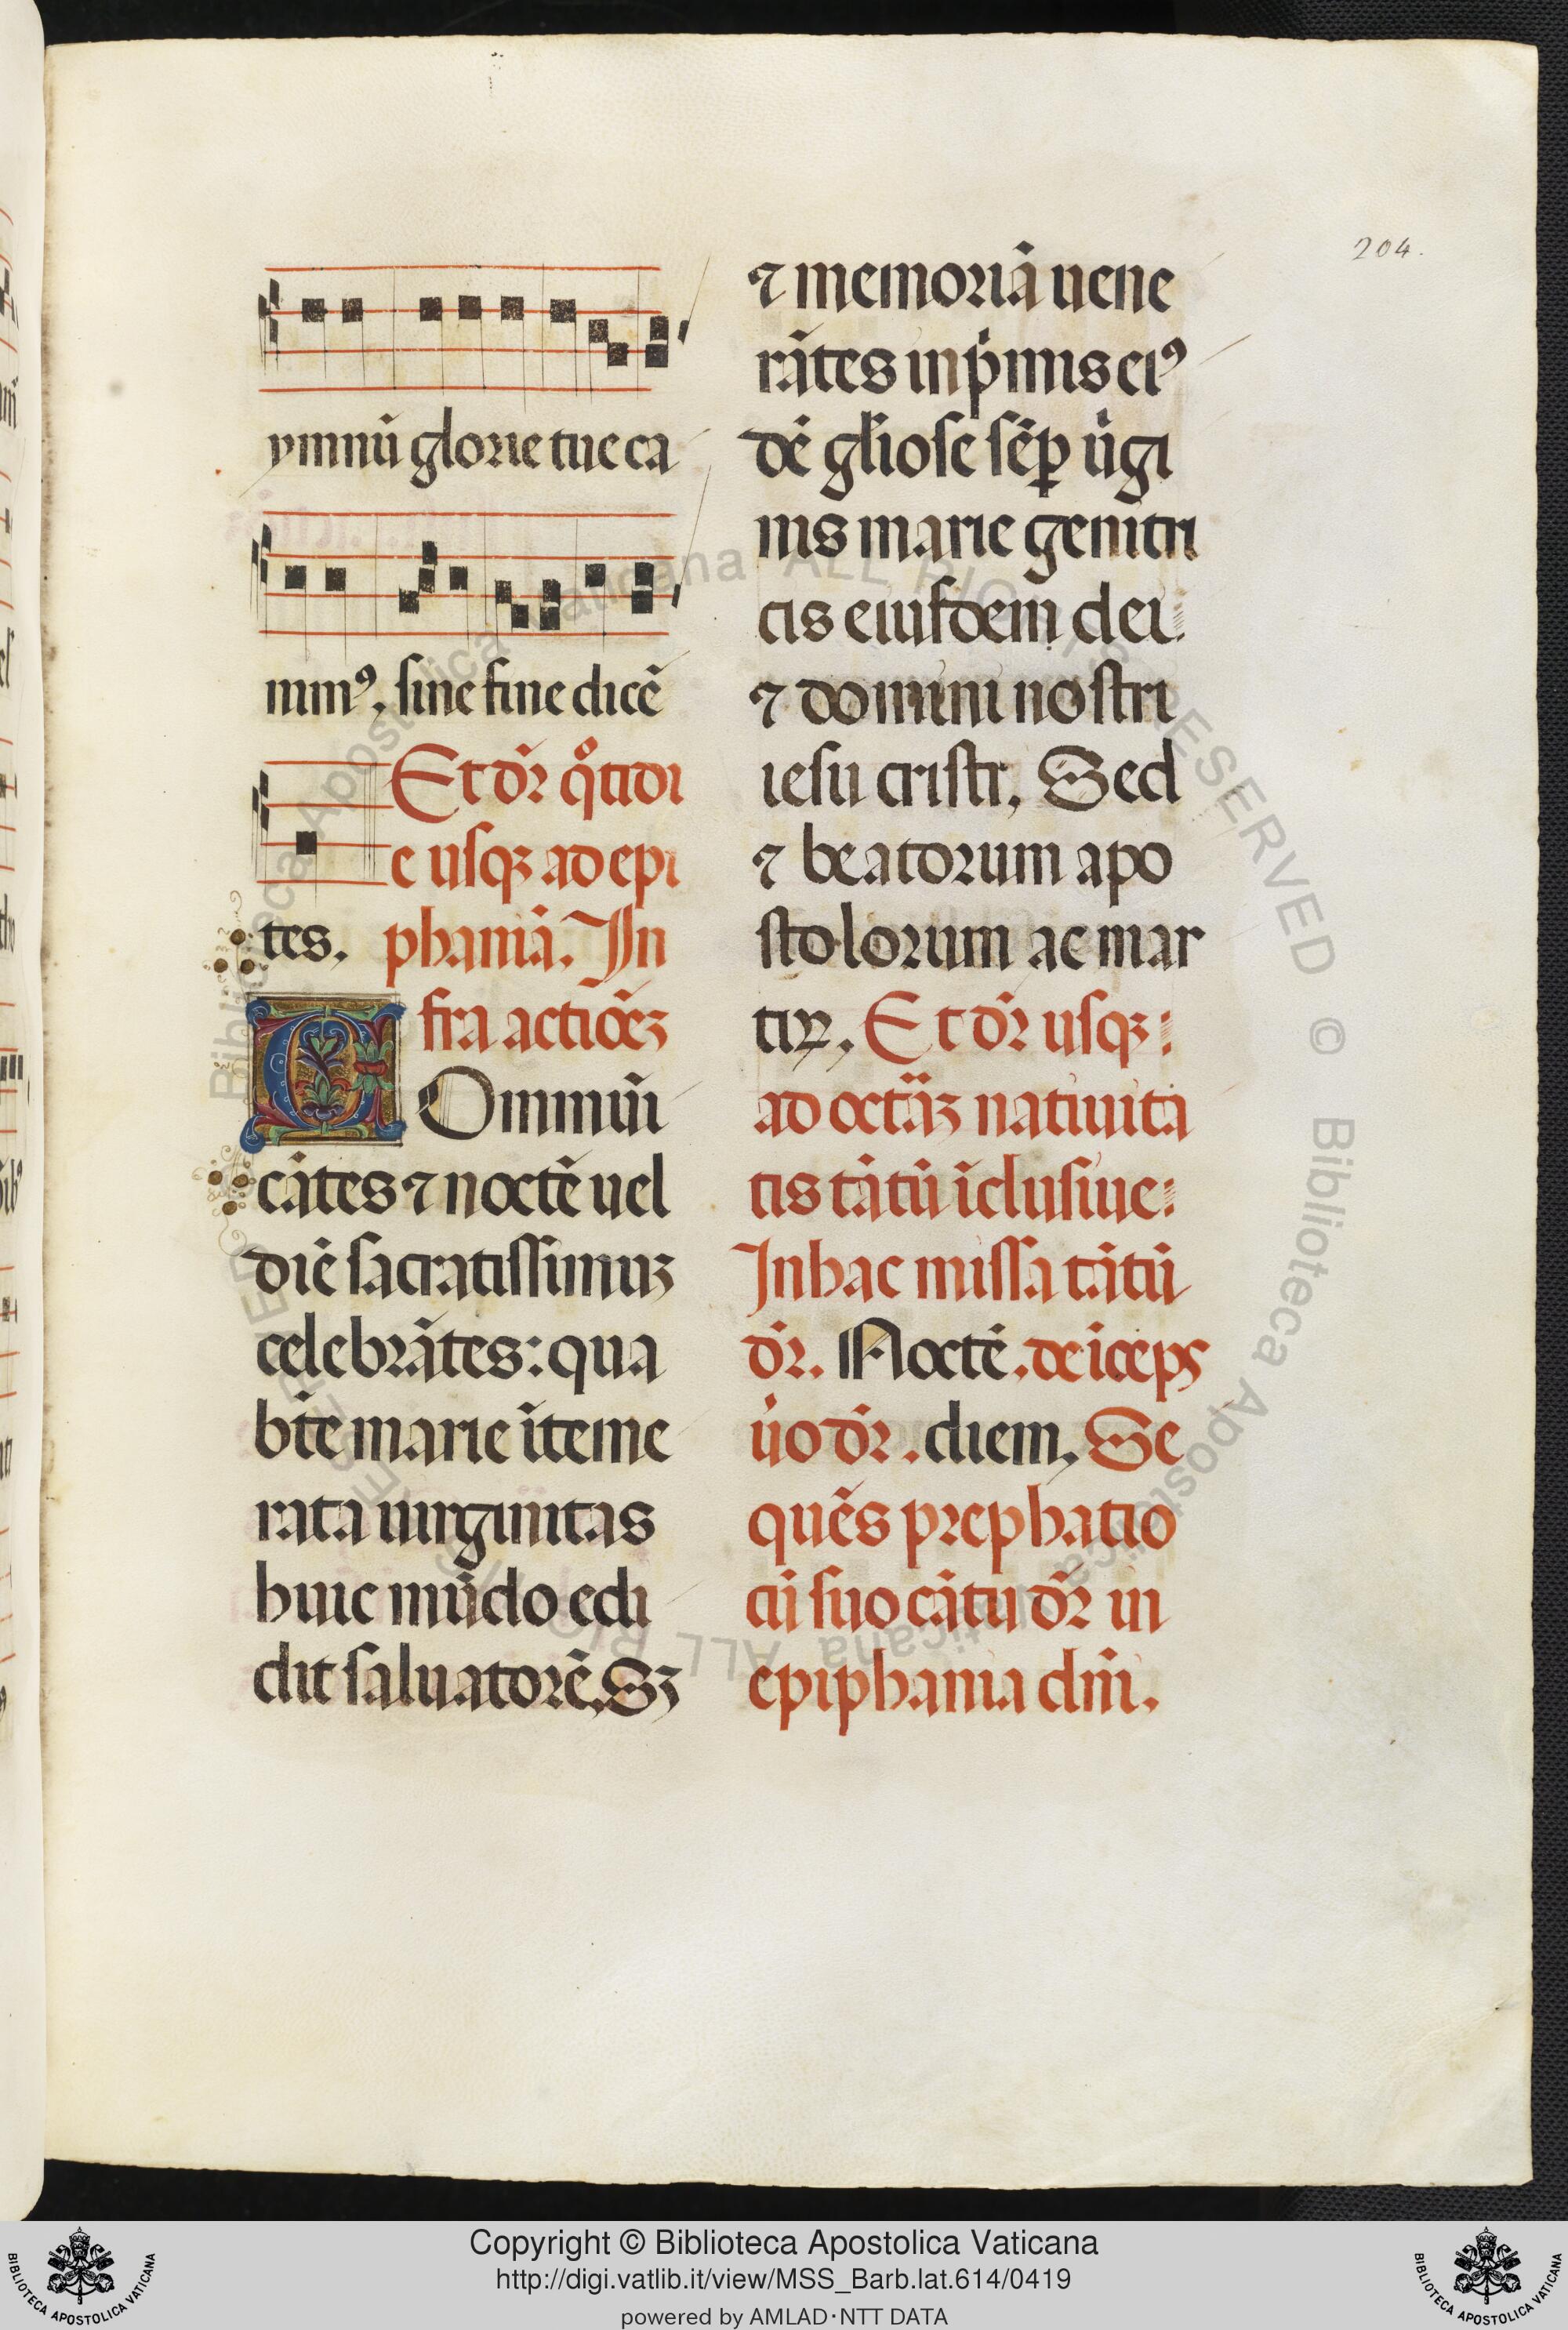 204.
ymnū glorie tue ca
mmꝰ, sine fine dicē
Et dr̄ qͦtidi
e usqꝫ ad epi
tes. phaniā. In
fra actiōēꝫ
COmmuni
cātes ⁊ noctē uel
diē sacratissimuꝫ
celebrātes: qua
bt̄e marie īteme
rata uirginitas
huic mūdo edi
dit saluatorē, Sꝫ
⁊ memoriā uene
rātes inp̄mis eiꝰ
dē gl̄iose sēꝑ ūgi
nis marie genitri
cis eiusdem dei
⁊ domini nostri
iesu cristi, Sed
⁊ beatorum apo
stolorum ac mar
tiꝝ, Et dr̄ usqꝫ
ad octāꝫ natiuita
tis tātū īclusiue:
In hac missa tātū
dr̄. Noctē. deīceps
ūo dr̄. diem, Se
quēs prephatio
cū suo cātu dr̄ in
epiphania dn̄i.
Biblioteca Apostolica Vaticana ALL RIGHTS RESERVED © Biblioteca Apostolica Vaticana ALL RIGHTS RESERVED
Copyright © Biblioteca Apostolica Vaticana
http://digi.vatlib.it/view/MSS_Barb.lat.614/0419
powered by AMLAD·NTT DATA
BIBLIOTECA APOSTOLICA VATICANA
BIBLIOTECA APOSTOLICA VATICANA